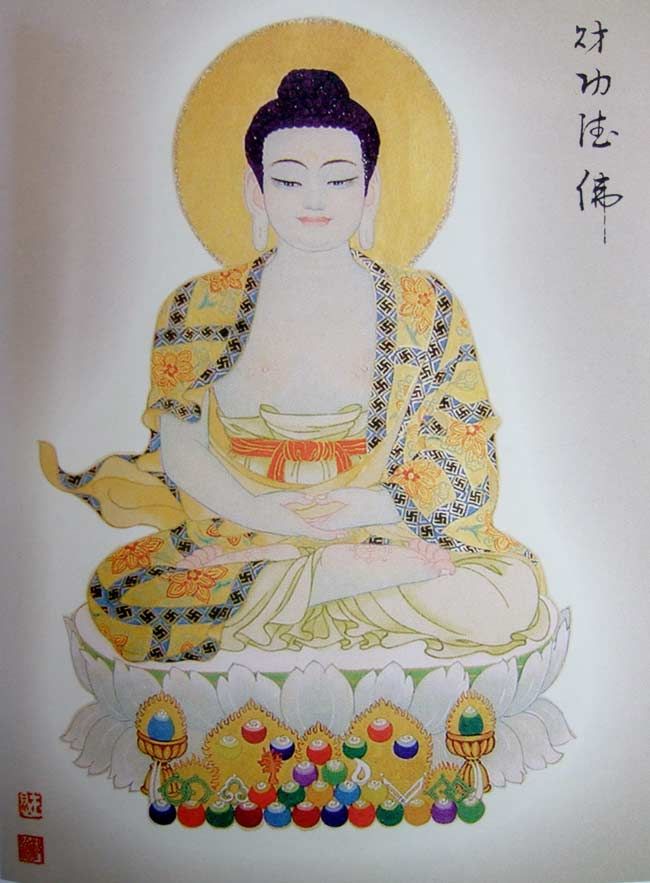 财功德佛